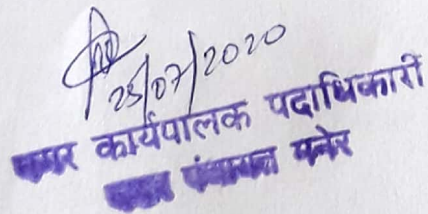 25/07/2020
नगर कार्यपालक पदाधिकारी
नगर पंचायत मनेर